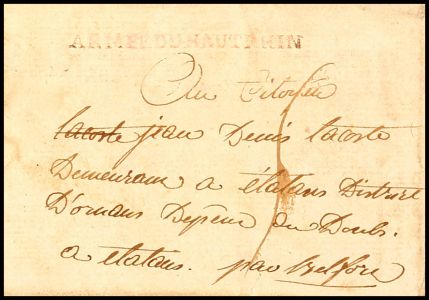 ARMEE DU HAUT RHIN
Au Citoyen
lacoste jean Denis lacoste
Demeuram a Etalans District
D'ornans Depème du Doubs.
a Etalans. par Belfore